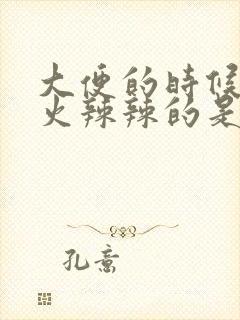 大便的時候
火辣辣的是
孔意